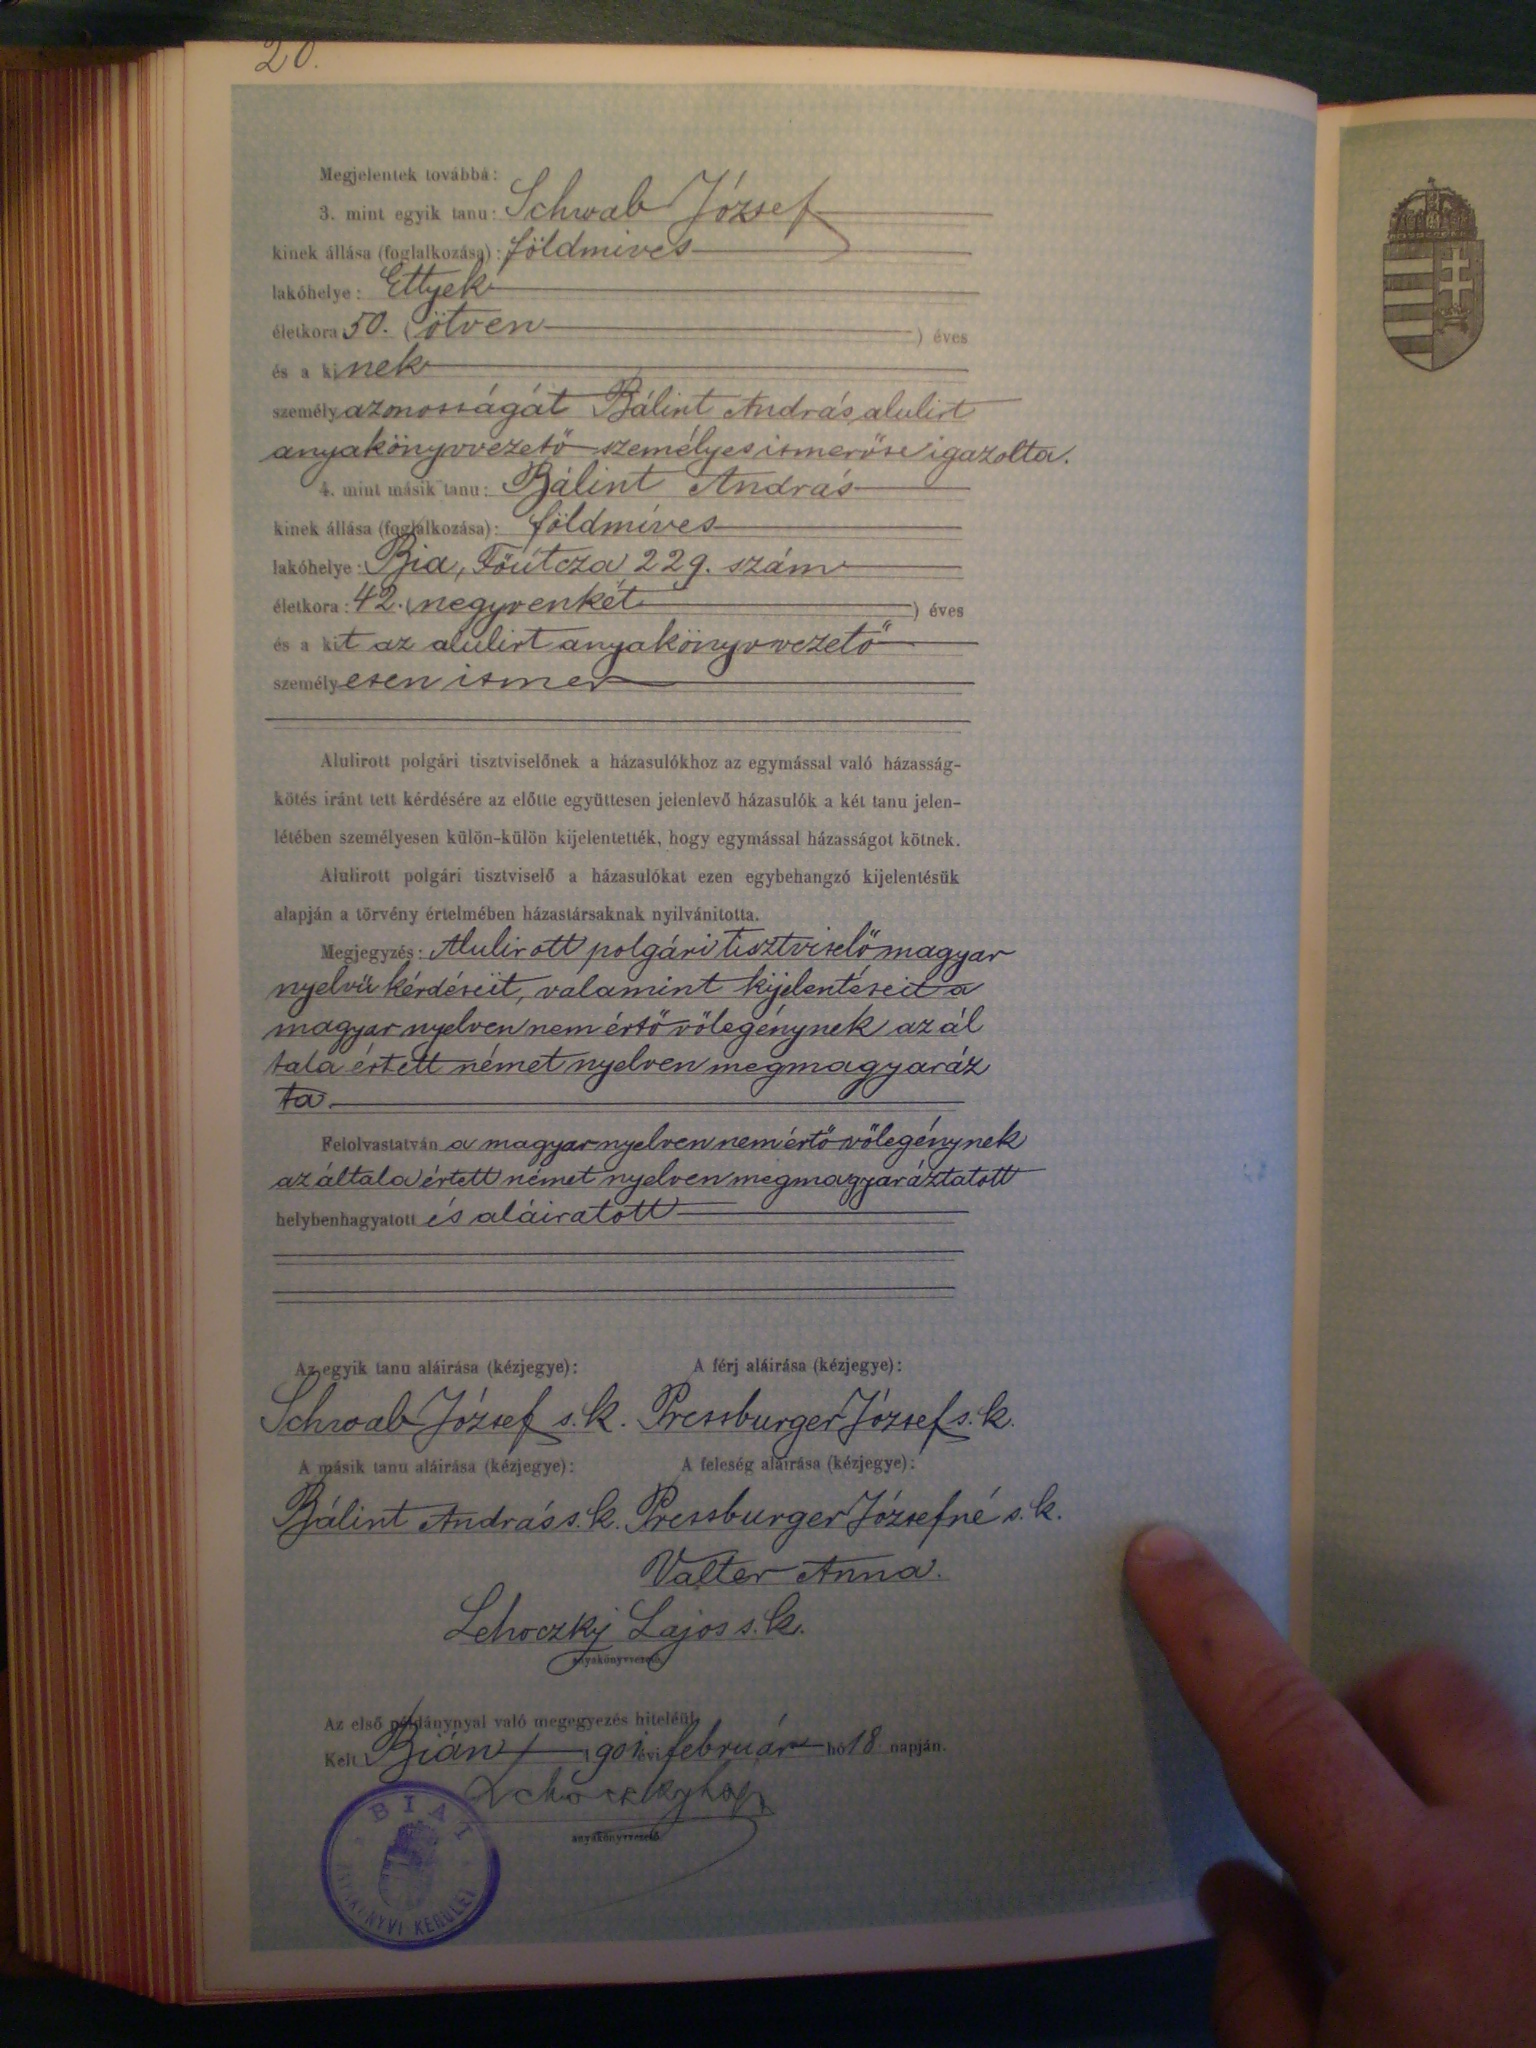 20.
Megjelentek továbbá:
3. mint egyik tanu: Schwab József
kinek állása (foglalkozása): földmives
lakóhelye: Ettyek
életkora 50. (ötven) éves
és a kinek
személyazonosságát Bálint András alulirt
anyakönyvvezető személyes ismerőse igazolta.
4. mint másik tanu: Bálint András
kinek állása (foglalkozása): földmíves
lakóhelye: Bia, Főútcza 229. szám
életkora: 42. (negyvenkét) éves
és a kit az alulirt anyakönyvvezető
személyesen ismer
Alulirott polgári tisztviselőnek a házasulókhoz az egymással való házasság-
kötés iránt tett kérdésére az előtte együttesen jelenlevő házasulók a két tanu jelen-
létében személyesen külön-külön kijelentették, hogy egymással házasságot kötnek.
Alulirott polgári tisztviselő a házasulókat ezen egybehangzó kijelentésük
alapján a törvény értelmében házastársaknak nyilvánitotta.
Megjegyzés: Alulirott polgári tisztviselő magyar
nyelvü kérdéseit, valamint kijelentéseit a
magyar nyelven nem értő vőlegénynek az ál
tala értett német nyelven megmagyaráz
ta
Felolvastatván a magyar nyelven nem értő vőlegénynek
az általa értett német nyelven megmagyaráztatott
helybenhagyatott és aláiratott
Az egyik tanu aláirása (kézjegye): A férj aláirása (kézjegye):
Schwab József s.k. Pressburger József s.k.
A másik tanu aláirása (kézjegye): A feleség aláirása (kézjegye):
Bálint András s.k. Pressburger Józsefné s.k.
Valter Anna.
Lehoczky Lajos s.k.
anyakönyvvezető.
Az első példánynyal való megegyezés hiteléül.
Kelt Bián, 1901 évi február hó 18 napján.
Lehoczky Lajos
anyakönyvvezető.
BIAI
ANYAKÖNYVI KERÜLET